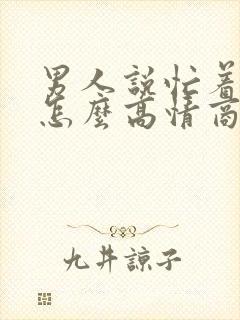 男人說忙着
怎麼高情商
九井諒子